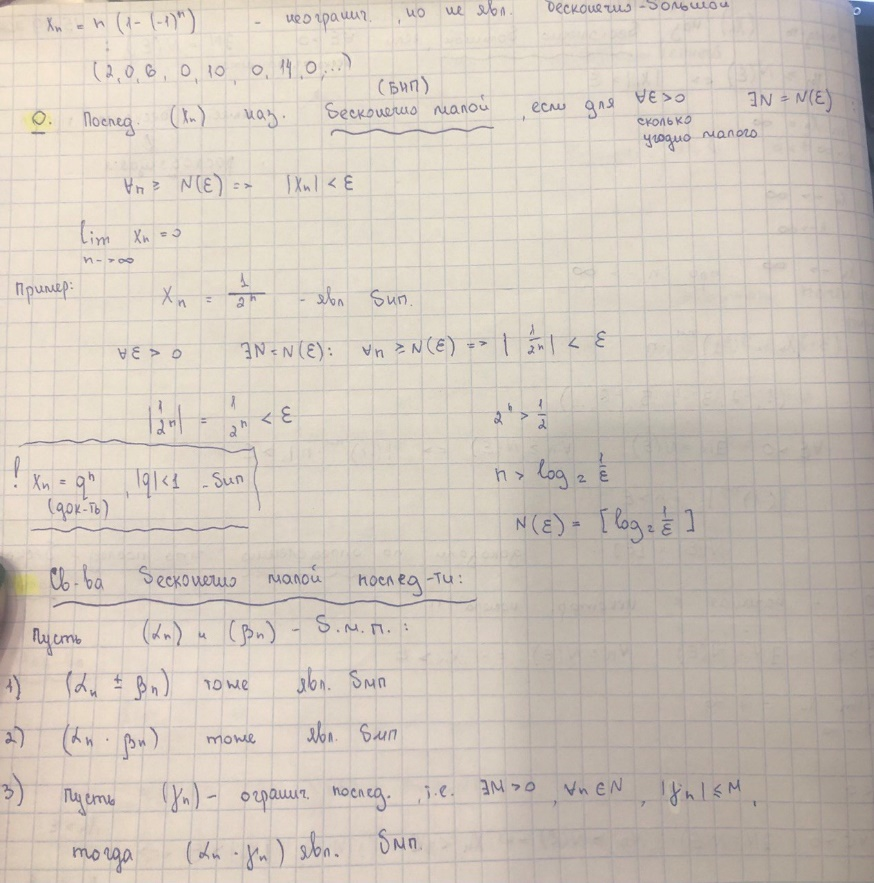 xₙ = n (1-(-1)ⁿ) - неогранич., но не явл. бесконечно-большой
(2,0,6, 0,10, 0,14,0,...)
(БМП)
О. Послед. (xₙ) наз. бесконечно малой, если для ∀ε>0 ∃N=N(ε)
сколько
угодно малого
∀n ≥ N(ε) => |xₙ| < ε
lim xₙ = 0
n->∞
Пример: xₙ = 1/2ⁿ - явл бмп.
∀ε > 0 ∃N=N(ε): ∀n ≥ N(ε) => |1/2ⁿ| < ε
|1/2ⁿ| = 1/2ⁿ < ε 2ⁿ > 1/2
! xₙ = qⁿ, |q|<1 - бмп n > log₂ 1/ε
(док-ть)
N(ε) = [log₂ 1/ε]
Св-ва бесконечно малой послед-ти:
Пусть (αₙ) и (βₙ) - б.м.п.:
1) (αₙ ± βₙ) тоже явл. бмп
2) (αₙ · βₙ) тоже явл. бмп
3) Пусть (γₙ) - огранич. послед., т.е. ∃M>0, ∀n∈N, |γₙ| ≤ M,
тогда (αₙ · γₙ) явл. бмп.